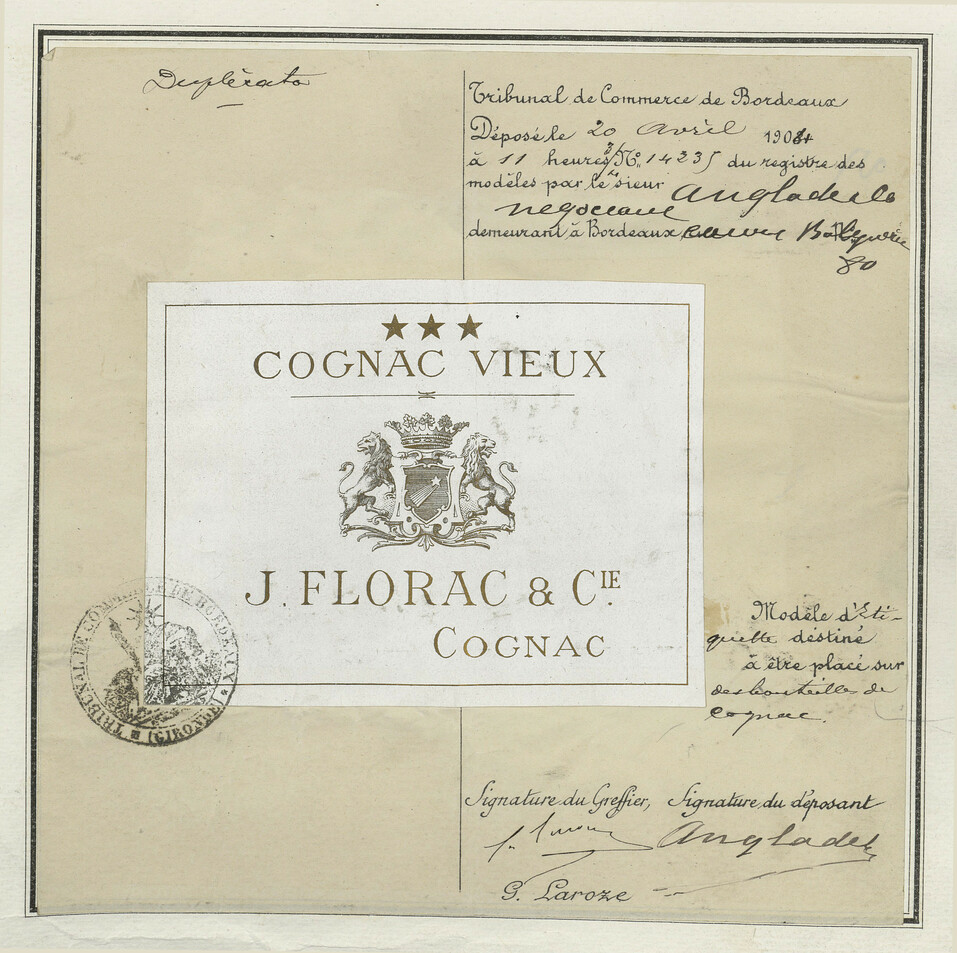 Duplicata
Tribunal de Commerce de Bordeaux
Déposé le 20 Avril 1904
à 11 heures N° 14235 du registre des
modèles par le sieur Anglade &
négociant
demeurant à Bordeaux
80
★★★
COGNAC VIEUX
J. FLORAC & CIE.
COGNAC
TRIBUNAL DE COMMERCE DE BORDEAUX
(GIRONDE)
Modèle d'Eti-
quette déstiné
à être placé sur
des bouteilles de
cognac.
Signature du Greffier, Signature du déposant
Anglade
G. Laroze